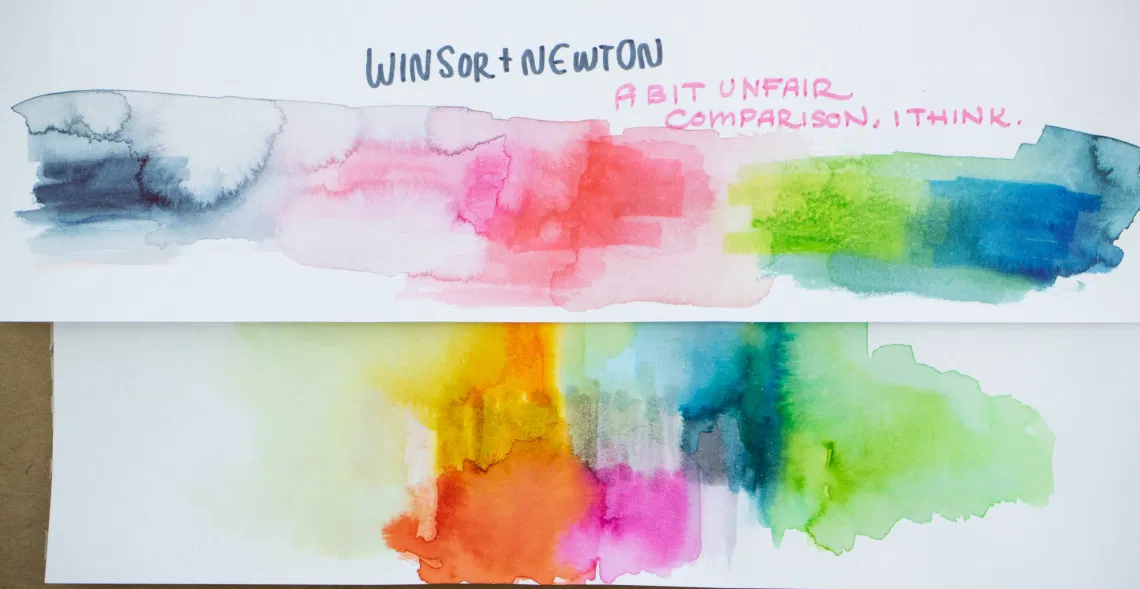 WINSOR + NEWTON
A BIT UNFAIR
COMPARISON, I THINK.